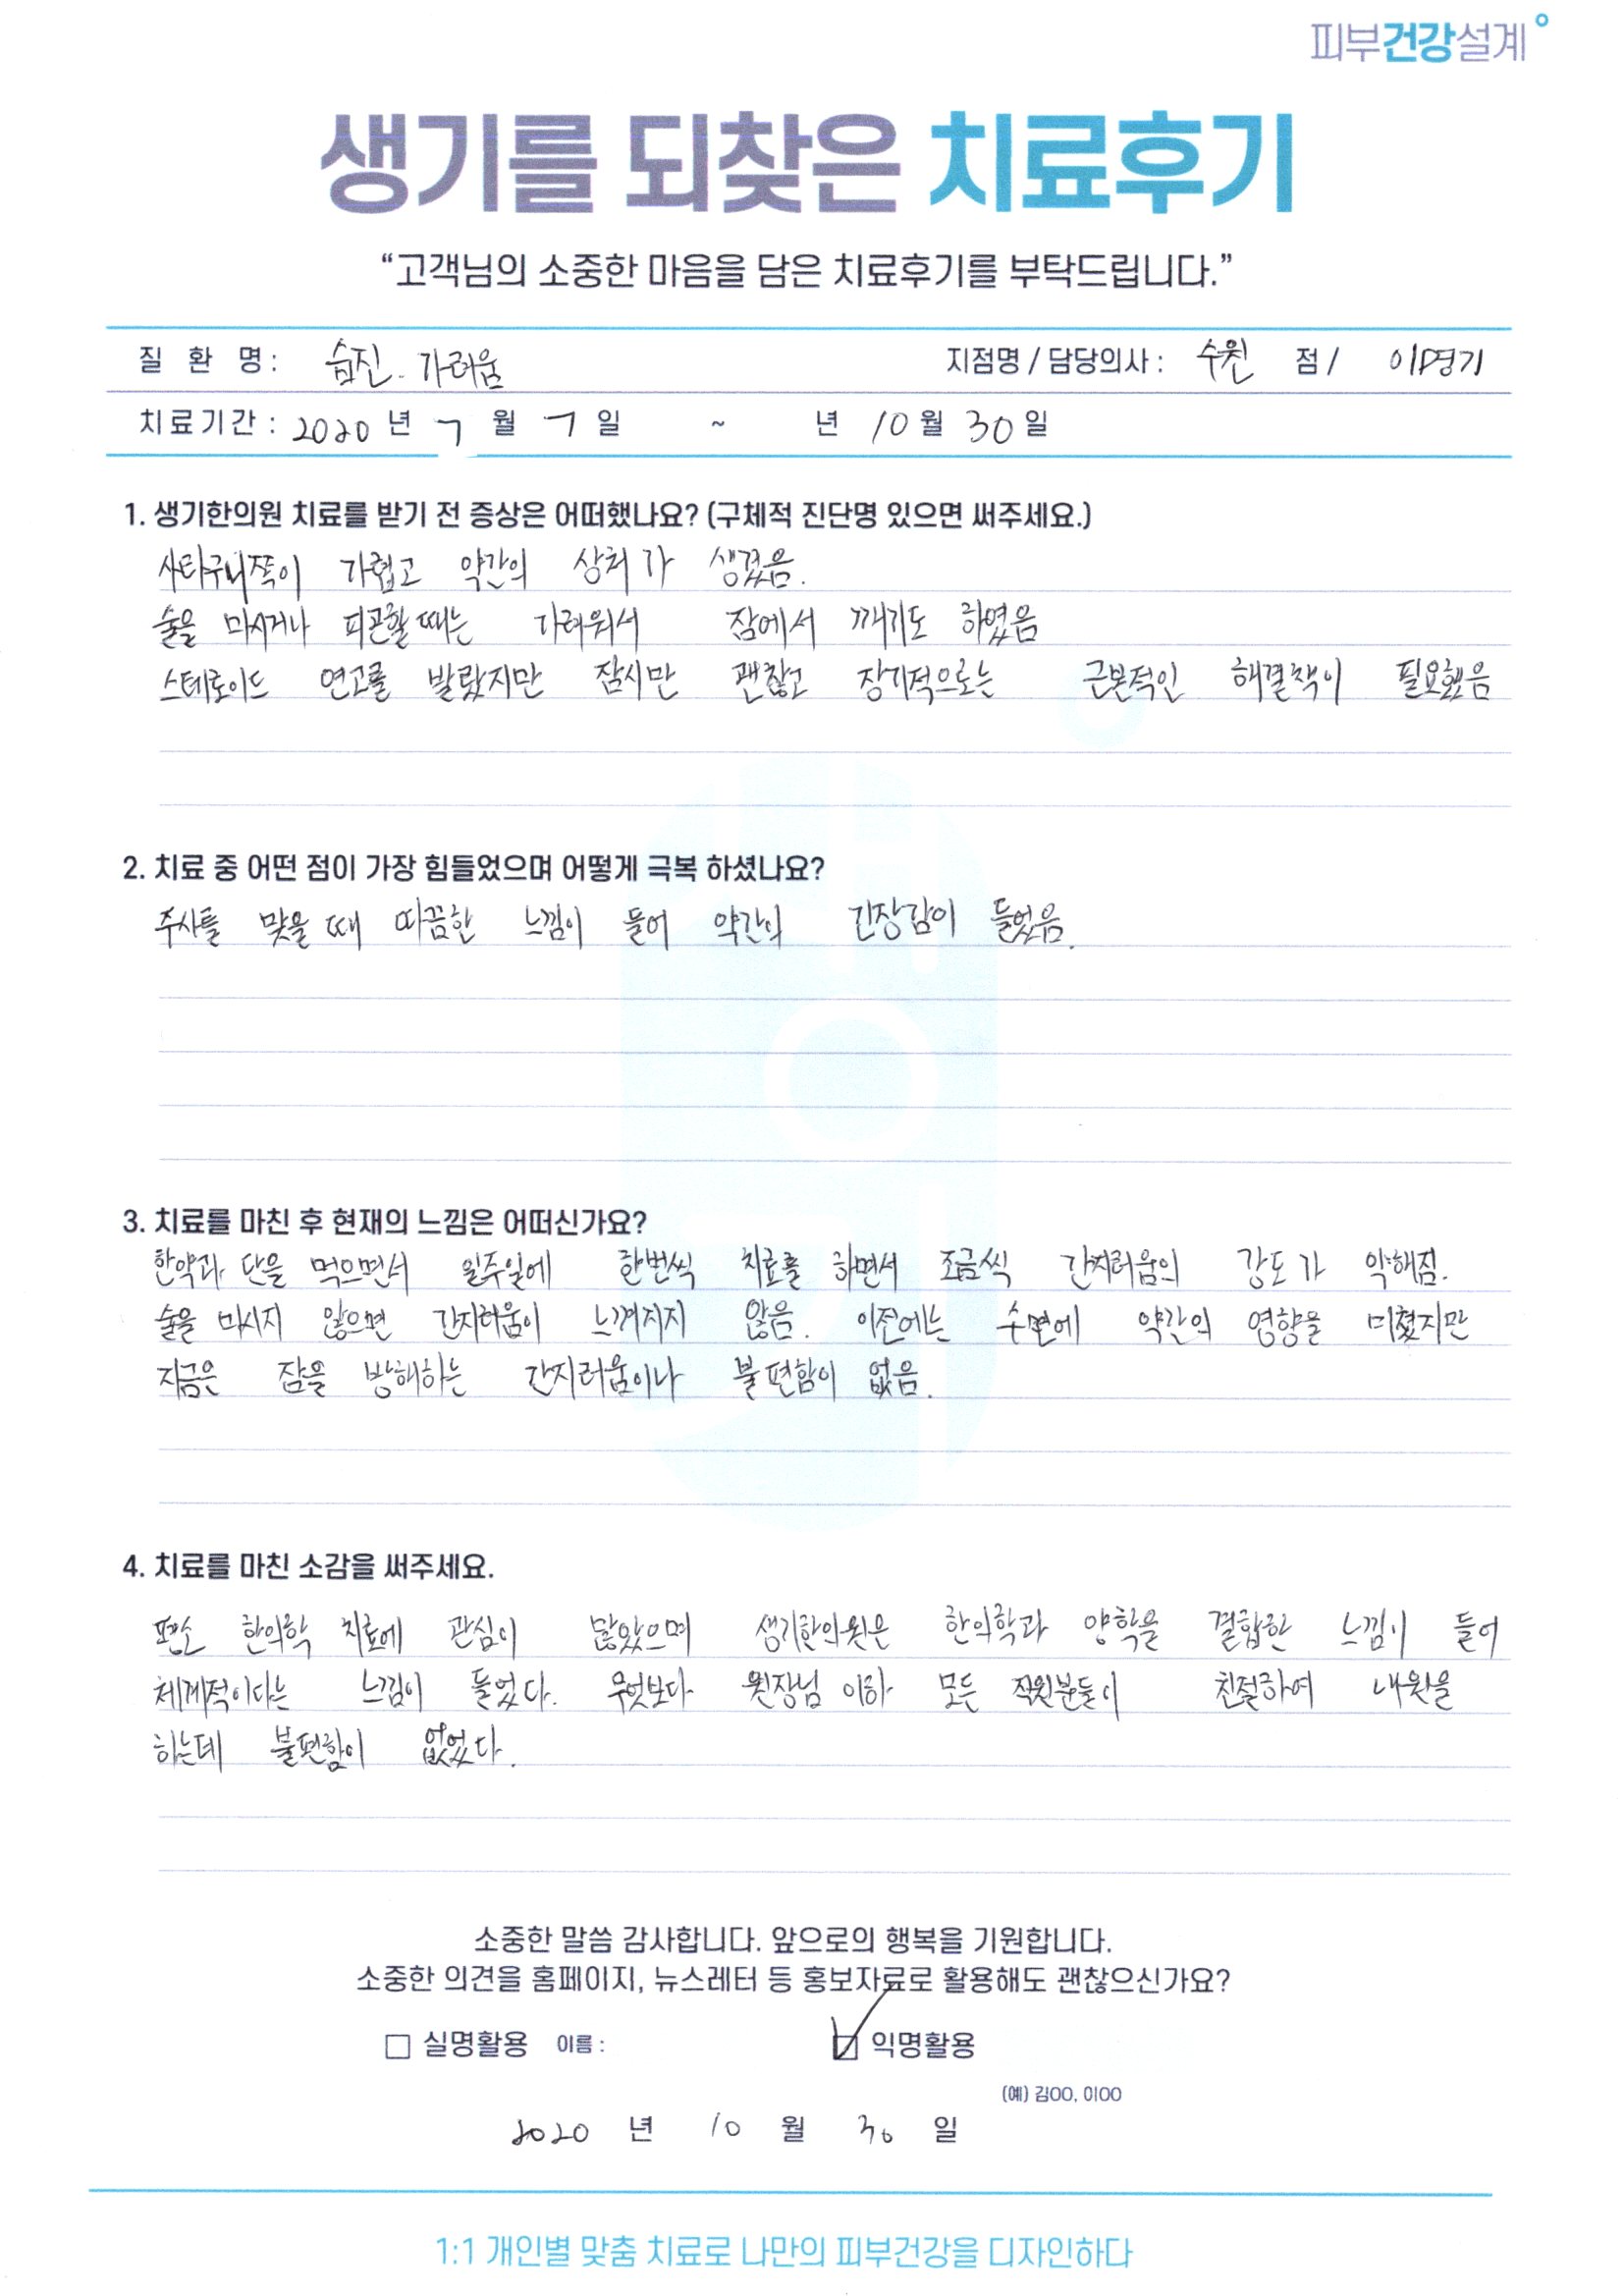 피부건강설계
생기를 되찾은 치료후기
“고객님의 소중한 마음을 담은 치료후기를 부탁드립니다.”
질 환 명 : 습진. 가려움 지점명 / 담당의사 : 수원 점 / 이명기
치료기간 : 2020 년 7 월 7 일 ~ 년 10 월 30 일
1. 생기한의원 치료를 받기 전 증상은 어떠했나요? (구체적 진단명 있으면 써주세요.)
사타구니쪽이 가렵고 약간의 상처가 생겼음.
술을 마시거나 피곤할때는 가려워서 잠에서 깨기도 하였음
스테로이드 연고를 발랐지만 잠시만 괜찮고 장기적으로는 근본적인 해결책이 필요했음
2. 치료 중 어떤 점이 가장 힘들었으며 어떻게 극복 하셨나요?
주사를 맞을 때 따끔한 느낌이 들어 약간의 긴장감이 들었음.
3. 치료를 마친 후 현재의 느낌은 어떠신가요?
한약과 단을 먹으면서 일주일에 한번씩 치료를 하면서 조금씩 간지러움의 강도가 약해짐.
술을 마시지 않으면 간지러움이 느껴지지 않음. 이전에는 수면에 약간의 영향을 미쳤지만
지금은 잠을 방해하는 간지러움이나 불편함이 없음.
4. 치료를 마친 소감을 써주세요.
평소 한의학 치료에 관심이 많았으며 생기한의원은 한의학과 양학을 결합한 느낌이 들어
체계적이다는 느낌이 들었다. 무엇보다 원장님 이하 모든 직원분들이 친절하여 내원을
하는데 불편함이 없었다.
소중한 말씀 감사합니다. 앞으로의 행복을 기원합니다.
소중한 의견을 홈페이지, 뉴스레터 등 홍보자료로 활용해도 괜찮으신가요?
□ 실명활용 이름 : ☑ 익명활용
(예) 김OO, 이OO
2020 년 10 월 30 일
1:1 개인별 맞춤 치료로 나만의 피부건강을 디자인하다